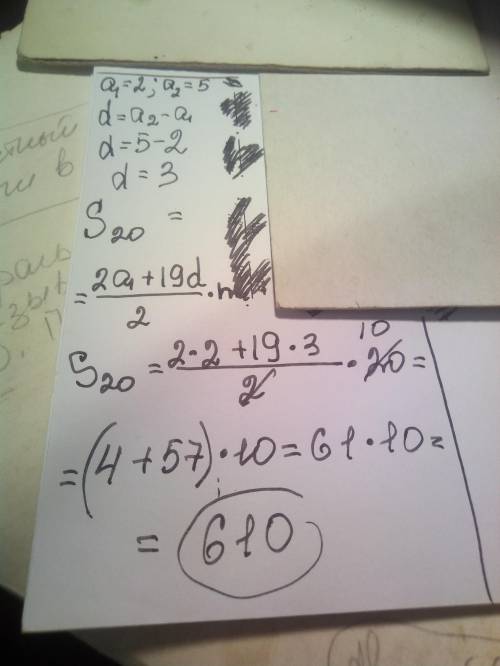 a₁=2; a₂=5
d=a₂-a₁
d=5-2
d=3
S₂₀ =
= (2a₁+19d)/2 · n
S₂₀ = (2·2+19·3)/2 · 20 = 10
=(4+57)·10=61·10=
= 610